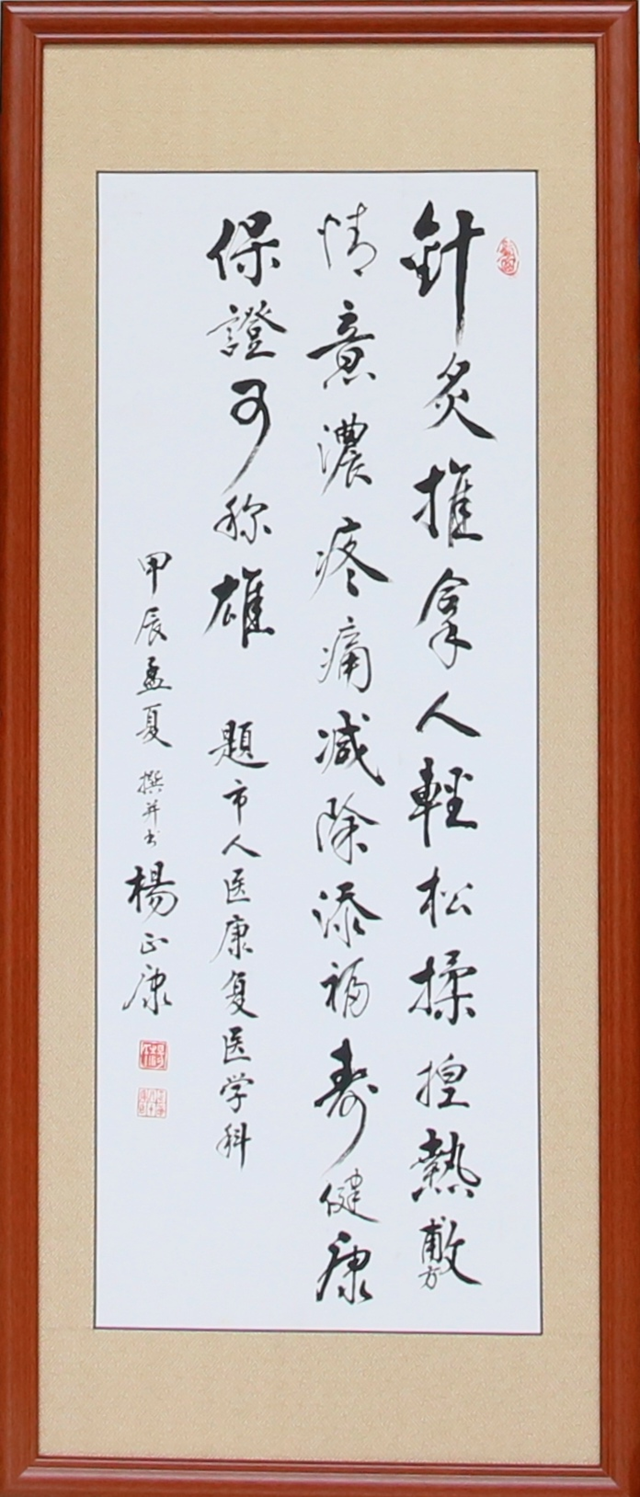 針灸推拿人輕松揉捏熱敷
情意濃疼痛減除添福壽健康
保證可称雄 題市人医康复医学科
甲辰孟夏撰并书楊正康